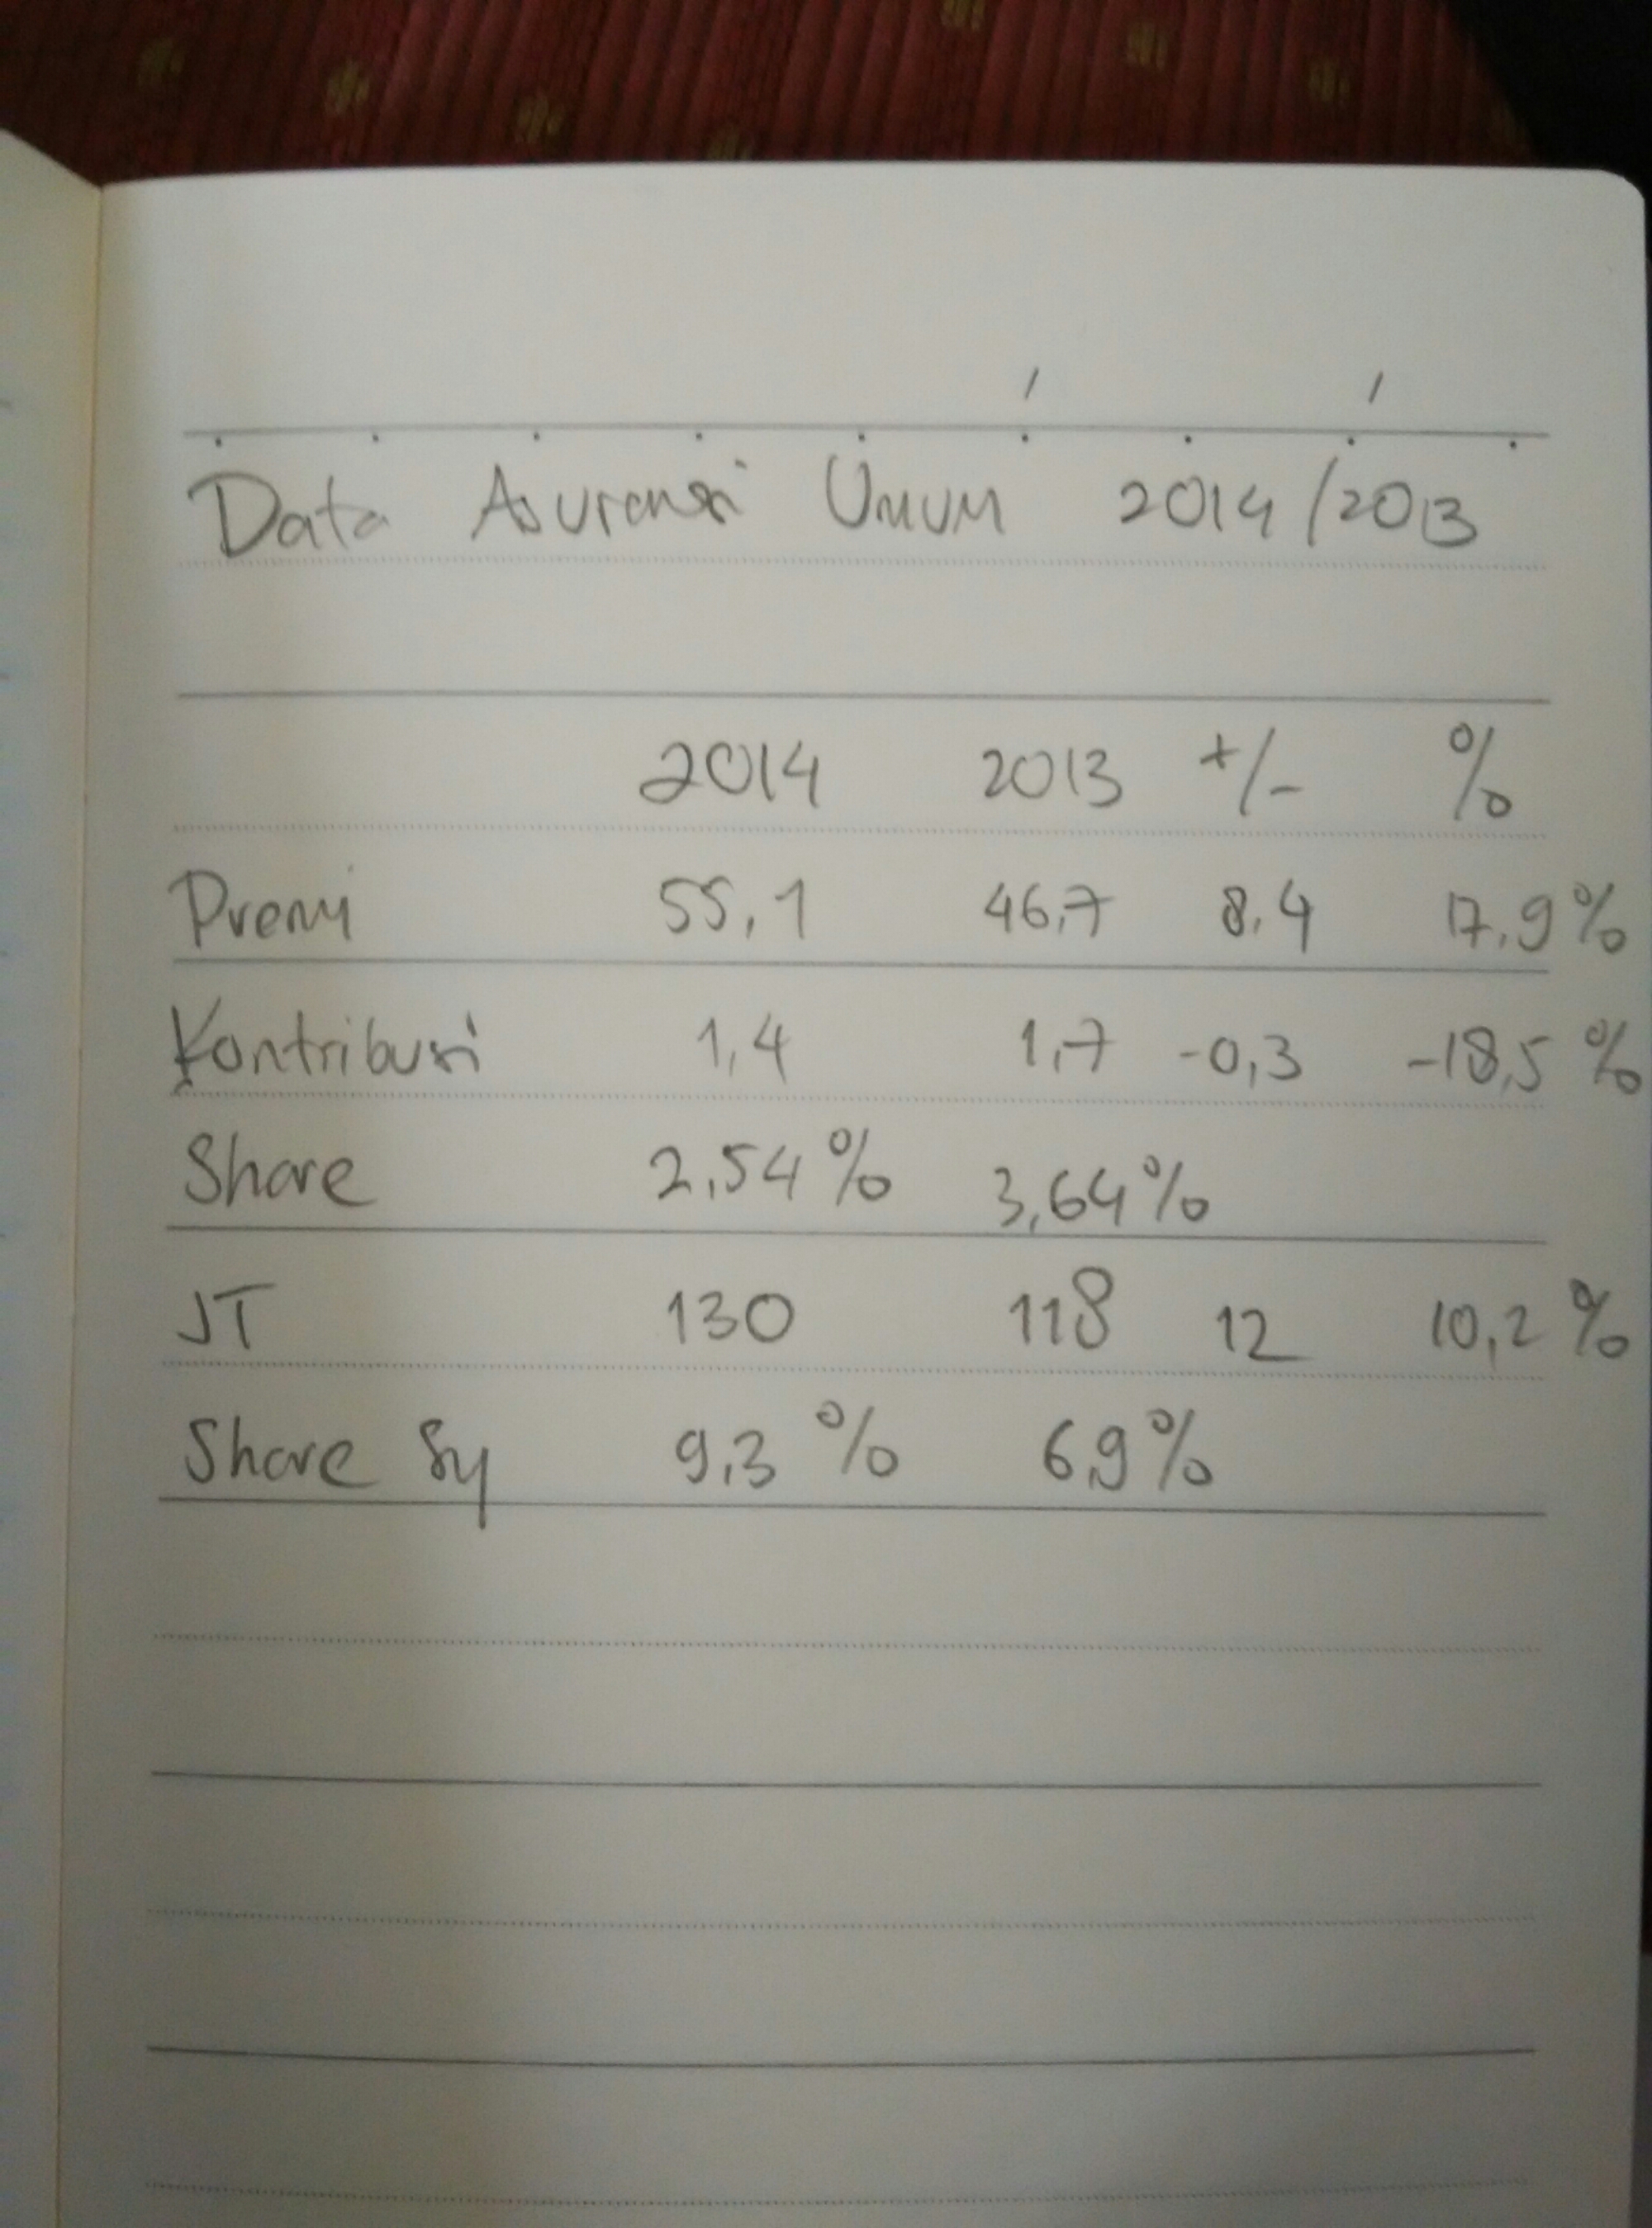 Data Asuransi Umum 2014/2013
2014 2013 +/- %
Premi 55,1 46,7 8,4 17,9%
Kontribusi 1,4 1,7 -0,3 -18,5 %
Share 2,54% 3,64%
JT 130 118 12 10,2 %
Share Sy 9,3 % 6,9%